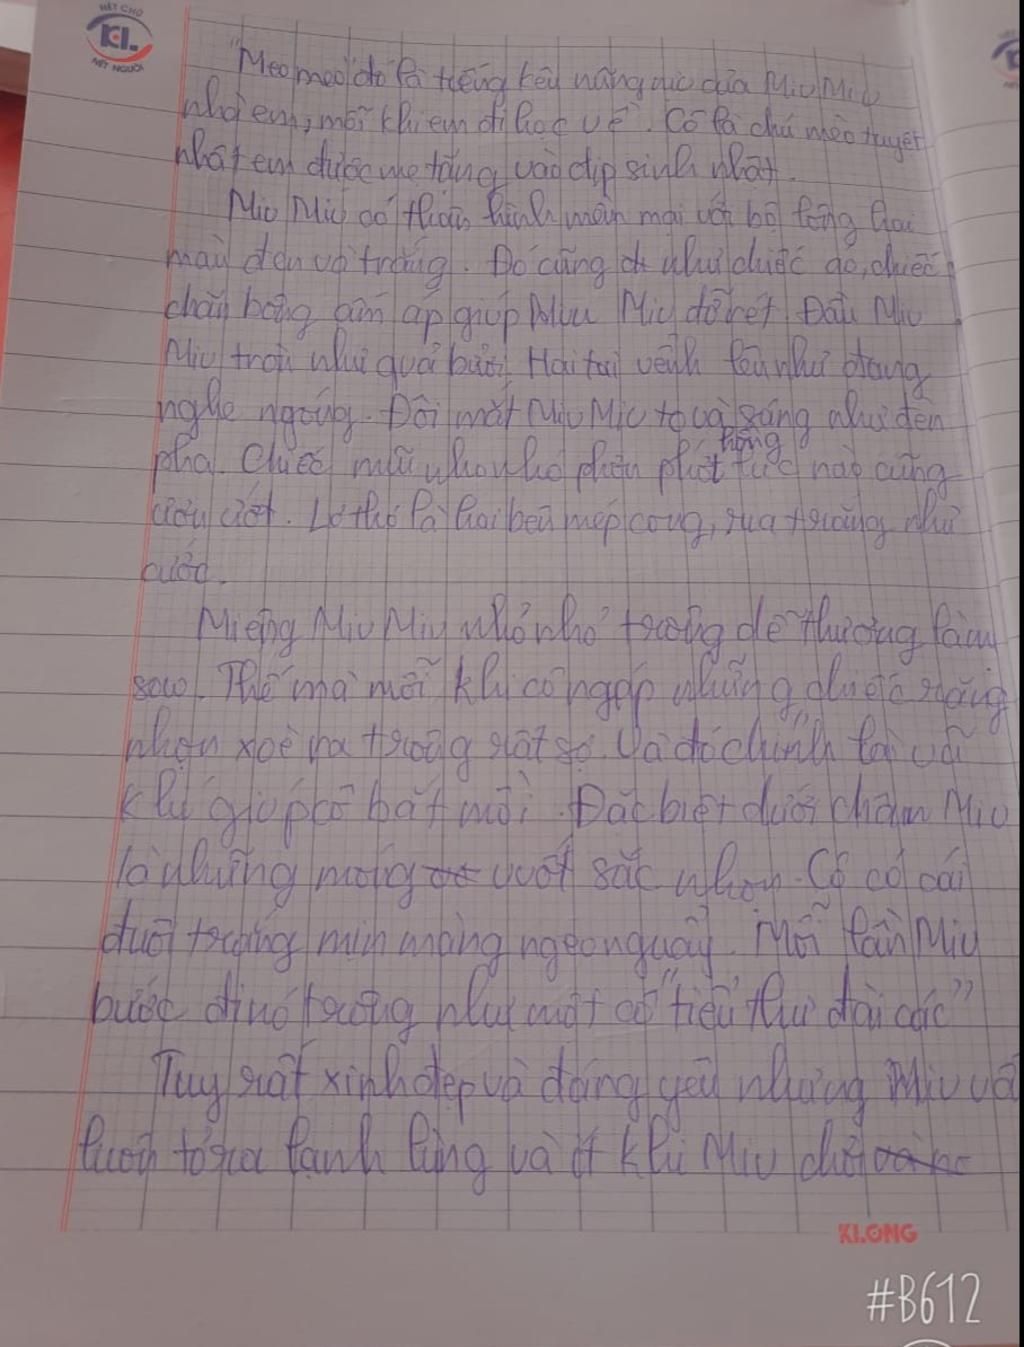 NÉT CHỮ
KL
NÉT NGƯỜI
"Meo meo" đó là tiếng kêu nũng nịu của Miu Miu
nhà em, mỗi khi em đi học về. Cô là chú mèo tuyệt
nhất em được mẹ tặng vào dịp sinh nhật.
Miu Miu có thân hình mềm mại với bộ lông hai
màu đen và trắng. Đó cũng như chiếc áo, chiếc
chăn bông ấm áp giúp Miu Miu đỡ rét. Đầu Miu
Miu tròn như quả bưởi. Hai tai vểnh lên như đang
nghe ngóng. Đôi mắt Miu Miu to và sáng như đèn
pha. Chiếc mũi nho nhỏ phơn phớt hồng lúc nào cũng
ươn ướt. Ló thó là hai bên mép cong, rua trắng như
cước.
Miệng Miu Miu nhỏ nhỏ trông dễ thương làm
sao. Thế mà mỗi khi cô ngáp những chiếc răng
nhọn xoè ra trông rất sợ. Và đó chính là vũ
khí giúp cô bắt mồi. Đặc biệt dưới chân Miu
là những móng vuốt sắc nhọn. Cô có cái
đuôi trắng mịn màng ngoe nguẩy. Mỗi lần Miu
bước đi nó trông như một cô "tiểu thư đài các"
Tuy rất xinh đẹp và đáng yêu nhưng Miu vẫ
luôn tỏ ra lạnh lùng và ít khi Miu chơi
KLONG
#B612